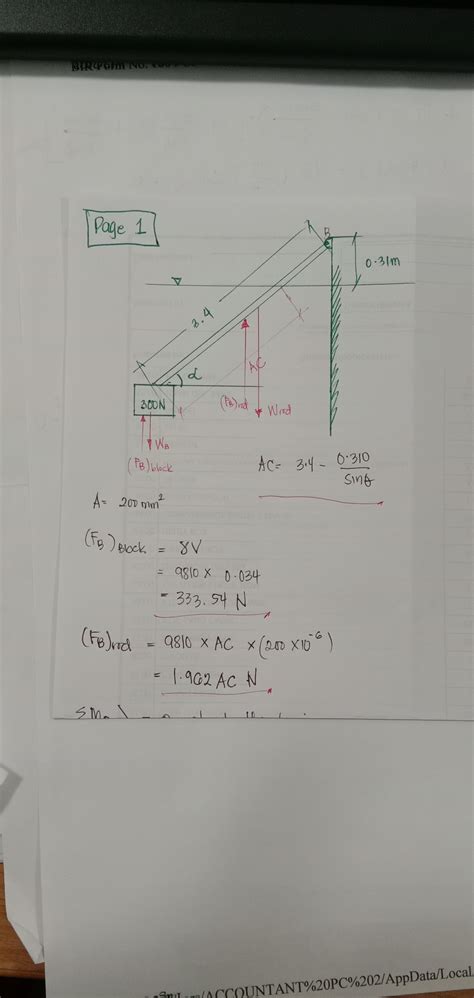 BIR Form No.
Page 1
B
0.31m
3.4
α
300N
AC
(FB)rod
Wrod
WB
(FB)block
AC = 3.4 - 0.310/sinθ
A = 200 mm²
(FB)Block = 8V
= 9810 x 0.034
= 333.54 N
(FB)rod = 9810 x AC x (200 x10⁻⁶)
= 1.962 AC N
/ACCOUNTANT%20PC%202/AppData/Local